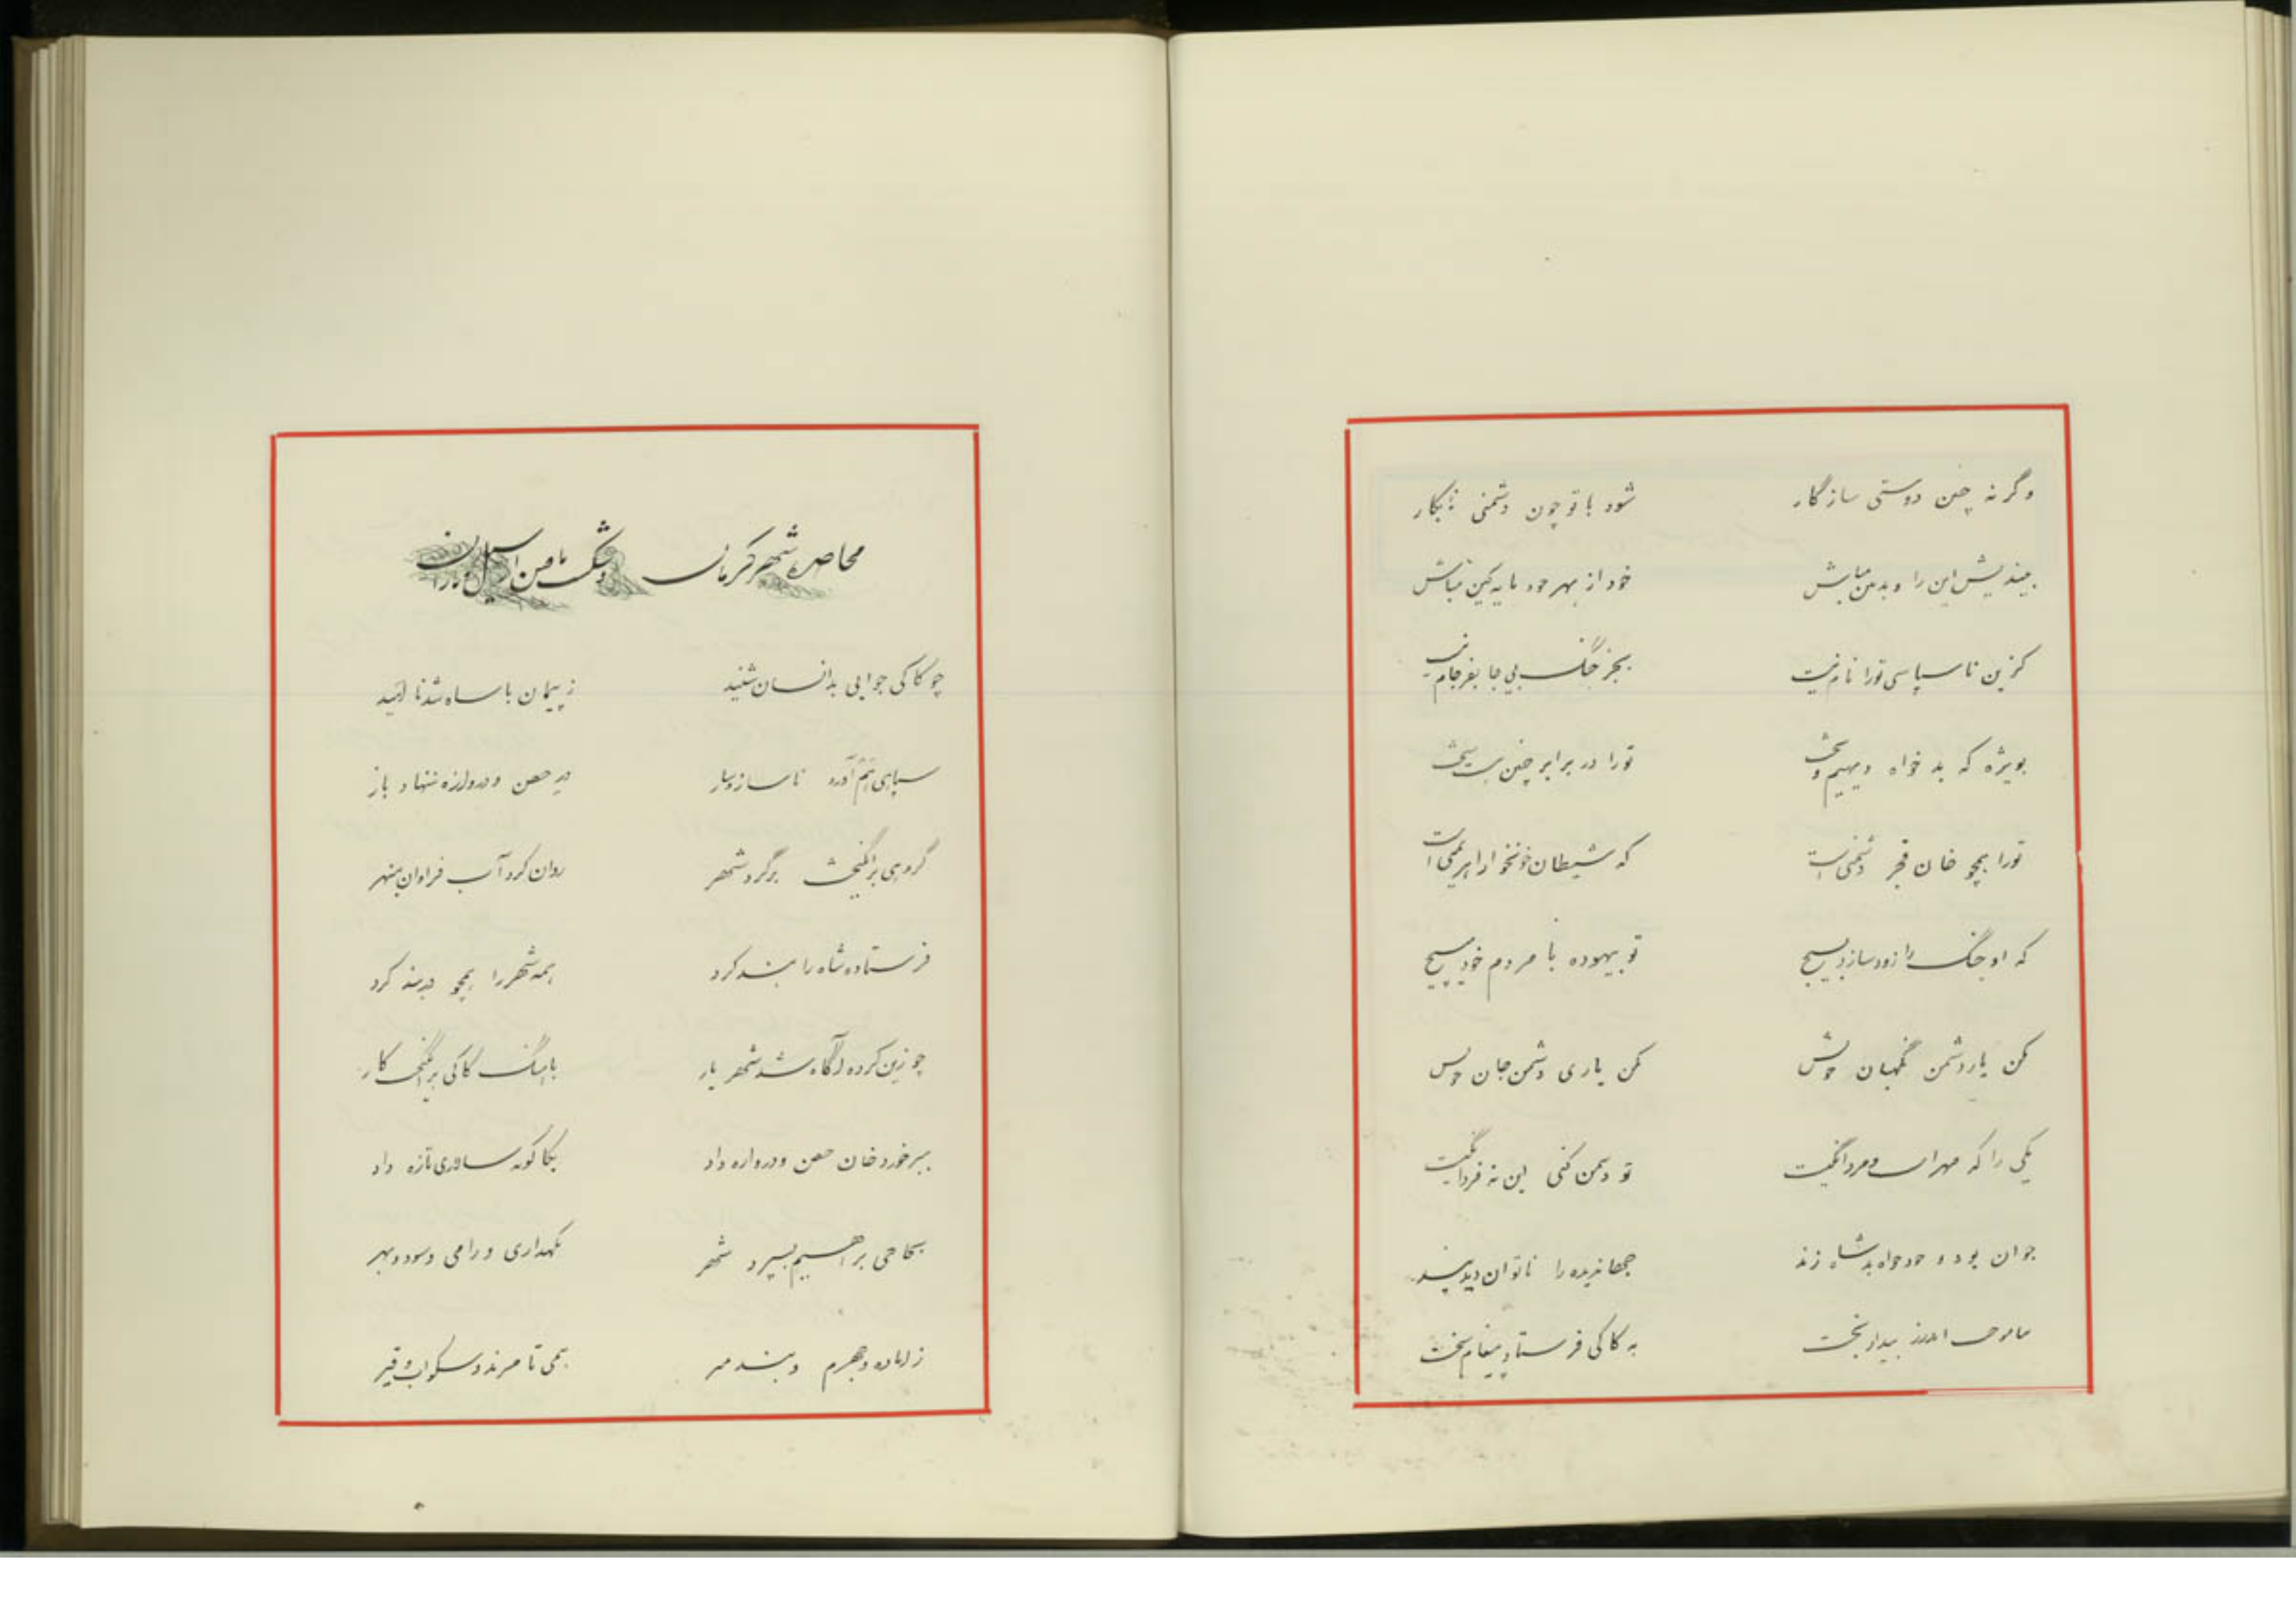 وگرنه چنین دوستی سازگار شود با تو چون دشمنی نابکار
بیندیش این را و بدبین مباش خود از بهر خود مایه کین مباش
کزین ناسپاسی تو را نام نیست بجز جنگ بی جا بفرجام نیست
بویژه که بدخواه دیهیم و تخت تو را در برابر چنین سخت
تو را همچو خان قجر دشمنی است که شیطان خونخوار اهریمنی است
که او جنگ را زود سازد بسیج تو بیهوده با مردم خود مپیچ
مکن یار دشمن نگهبان خویش مکن یاری دشمن جان خویش
یکی را که مهر است و مردانگیست تو دشمن کنی این نه فرزانگیست
جوان بود و خودخواه بد شاه زند جهاندیده را ناتوان دید پند
اندرز بیدار بخت به کاکی فرستاد پیغام سخت
محاصره شهر کرمان و
چو کاکی جوابی بدانسان شنید ز پیمان با شاه شد ناامید
سپاهی بهم آورد ناسازوار در حصن و دروازه ننهاد باز
گروهی برانگیخت برگرد شهر روان کرد آب فراوان بنهر
فرستاده شاه را بند کرد همه شهر را همچو دربند کرد
چو زین کرده آگاه شد شهریار باهنگ کاکی برانگیخت کار
خان حصن و دروازه داد سالاری تازه داد
بحاجی براهیم بسپرد شهر نگهداری و رامی و سود و بهر
ز آباده و جهرم و بند همی تا مرند و